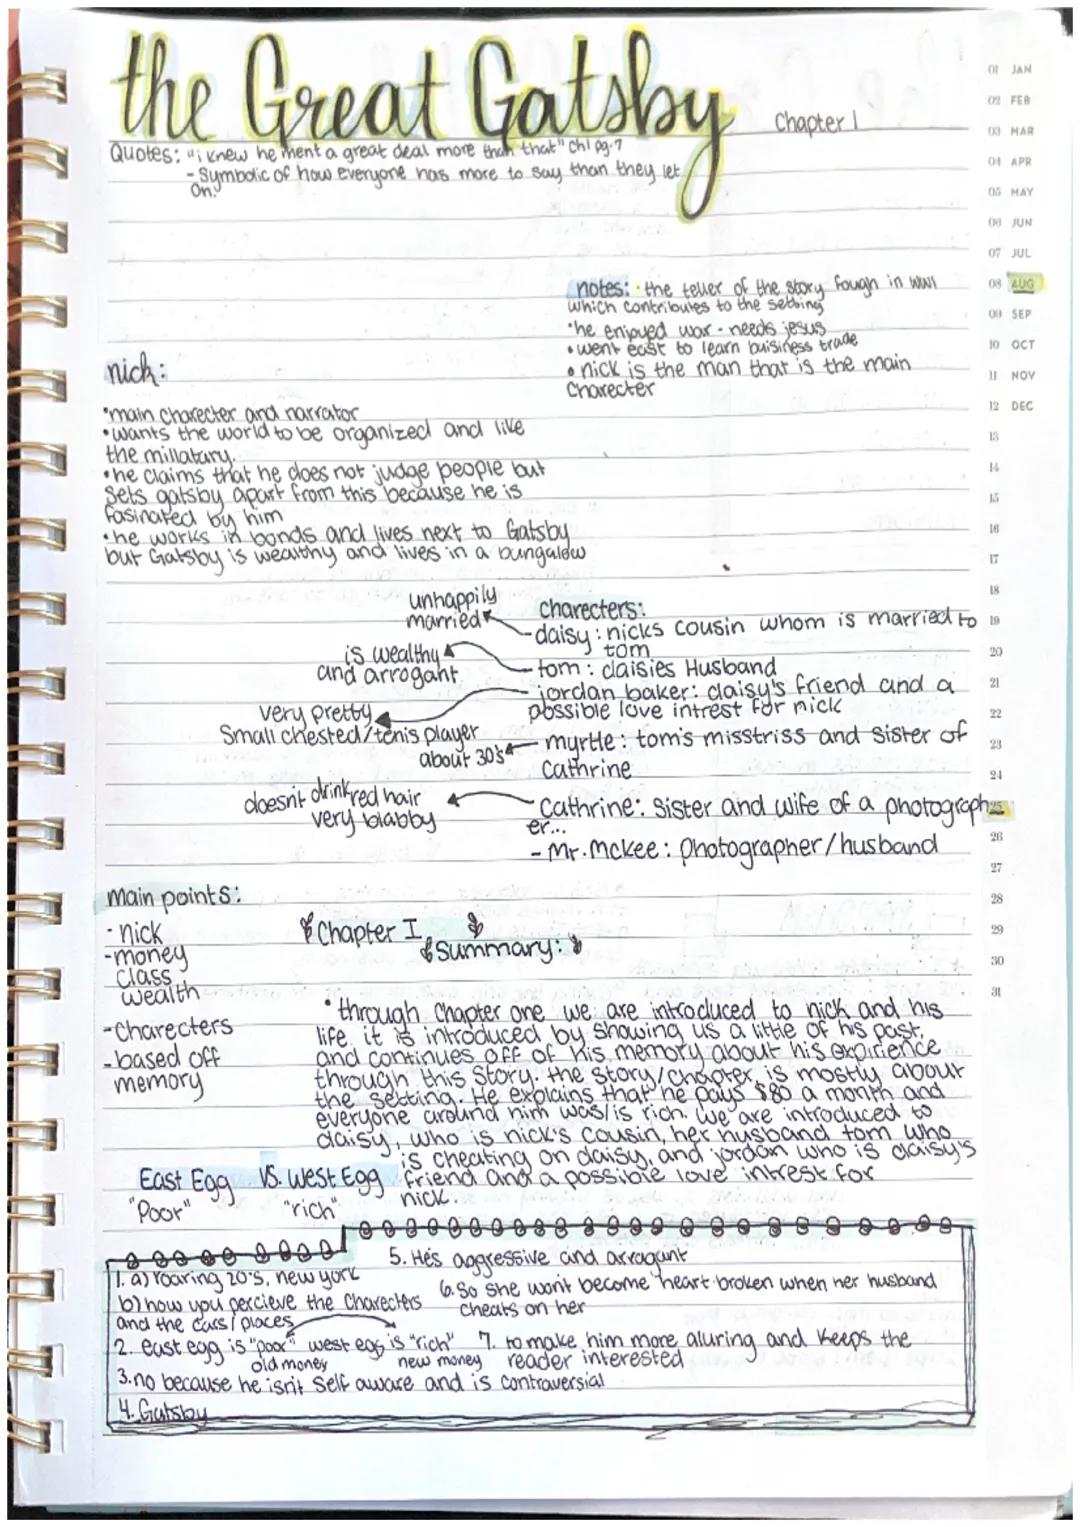 the Great Gatsby
Chapter 1
Quotes: "i knew he ment a great deal more than that" ch1 pg.7
- Symbolic of how everyone has more to say than they let
on.
notes: · the teller of the story fough in WWI
which contributes to the setting
•he enjoyed war - needs jesus
• went east to learn buisiness trade
• nick is the man that is the main
Charecter
nick:
•main charecter and narrator
•wants the world to be organized and like
the millatary.
•he claims that he does not judge people but
sets gatsby apart from this because he is
fasinated by him
•he works in bonds and lives next to Gatsby
but Gatsby is wealthy and lives in a bungalow
unhappily
married
charecters:
-daisy: nicks cousin whom is married to
tom
is wealthy
and arrogant
- tom: daisies Husband
- jordan baker: daisy's friend and a
possible love intrest for nick
very pretty
Small chested/tenis player
about 30's
- myrtle: tom's misstriss and sister of
Cathrine
doesn't drink red hair
very blabby
- Cathrine: Sister and wife of a photograph
er...
- Mr. Mckee: photographer/husband
main points:
- nick
-money
class
wealth
-Charecters
-based off
memory
Chapter I
Summary:
• through Chapter one we are introduced to nick and his
life. it is introduced by showing us a little of his past,
and continues off of his memory about his expirience
through this story. the story/chapter is mostly about
the setting. He explains that he pays $80 a month and
everyone around him was/is rich. we are introduced to
daisy, who is nick's cousin, her husband tom who
is cheating on daisy, and jordan who is daisy's
friend and a possible love intrest for
nick.
East Egg VS. West Egg
"Poor" "rich"
1. a) roaring 20's, new york
b) how you percieve the Charecters
and the cars/places
2. east egg is "poor" west egg is "rich"
old money new money
3. no because he isn't Self aware and is contraversial
4. Gatsby
5. He's aggressive and arragant
6. So she won't become heart broken when her husband
cheats on her
7. to make him more alluring and keeps the
reader interested
01 JAN
02 FEB
03 MAR
04 APR
05 MAY
06 JUN
07 JUL
08 AUG
09 SEP
10 OCT
11 NOV
12 DEC
13
14
15
16
17
18
19
20
21
22
23
24
25
26
27
28
29
30
31